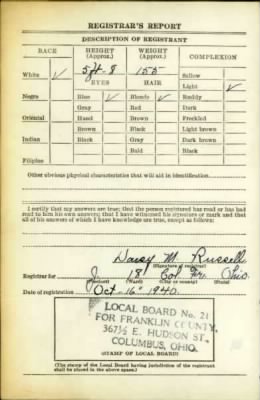 REGISTRAR'S REPORT
DESCRIPTION OF REGISTRANT
RACE HEIGHT (Approx.) WEIGHT (Approx.) COMPLEXION
White ✓ 5ft-8 155 Sallow
EYES HAIR Light ✓
Negro Blue ✓ Blonde ✓ Ruddy
Gray Red Dark
Oriental Hazel Brown Freckled
Brown Black Light brown
Indian Black Gray Dark brown
Bald Black
Filipino
Other obvious physical characteristics that will aid in identification
I certify that my answers are true; that the person registered has read or has had
read to him his own answers; that I have witnessed his signature or mark and that
all of his answers of which I have knowledge are true, except as follows:
Daisy M. Russell
(Signature of registrar)
Registrar for J 18 Col Fr. Ohio
(Ward) (City or county) (State)
Date of registration Oct 16" 1940
LOCAL BOARD No. 21
FOR FRANKLIN COUNTY,
367½ E. HUDSON ST.
COLUMBUS, OHIO.
(STAMP OF LOCAL BOARD)
(The stamp of the Local Board having jurisdiction of the registrant
shall be placed in the above space.)